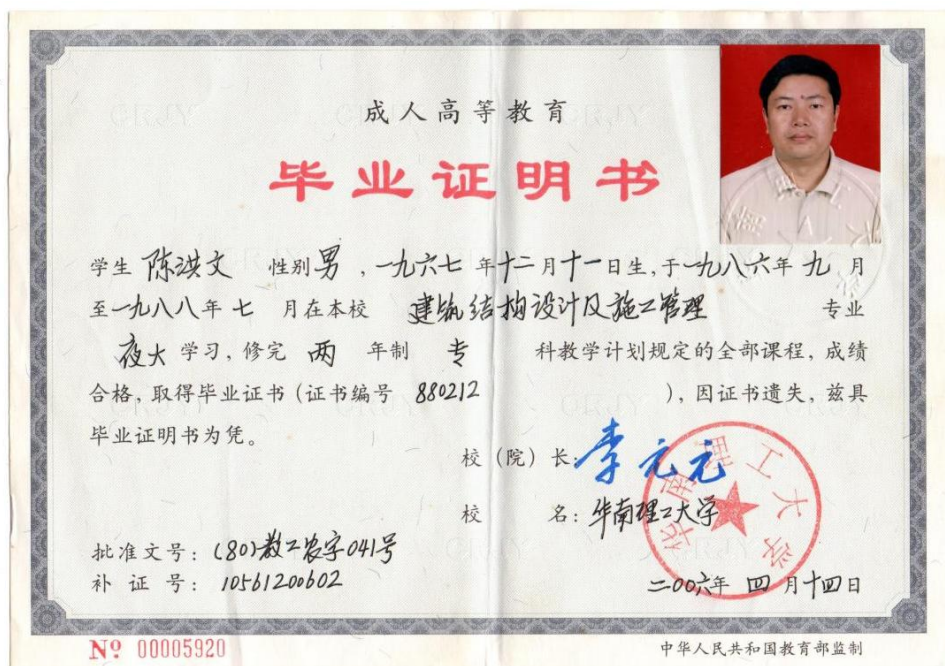 成人高等教育
毕业证明书
学生 陈洪文 性别 男 ,一九六七 年十二月十一日生,于一九八六年 九 月
至一九八八年 七 月在本校 建筑结构设计及施工管理 专业
夜大 学习,修完 两 年制 专 科教学计划规定的全部课程,成绩
合格,取得毕业证书(证书编号 880212 ),因证书遗失,兹具
毕业证明书为凭。
校(院)长:李元元
校 名:华南理工大学
华南理工大学
批准文号:(80)教工农字041号
补 证 号:10561200602
二〇〇六年 四 月十四日
№ 00005920
中华人民共和国教育部监制